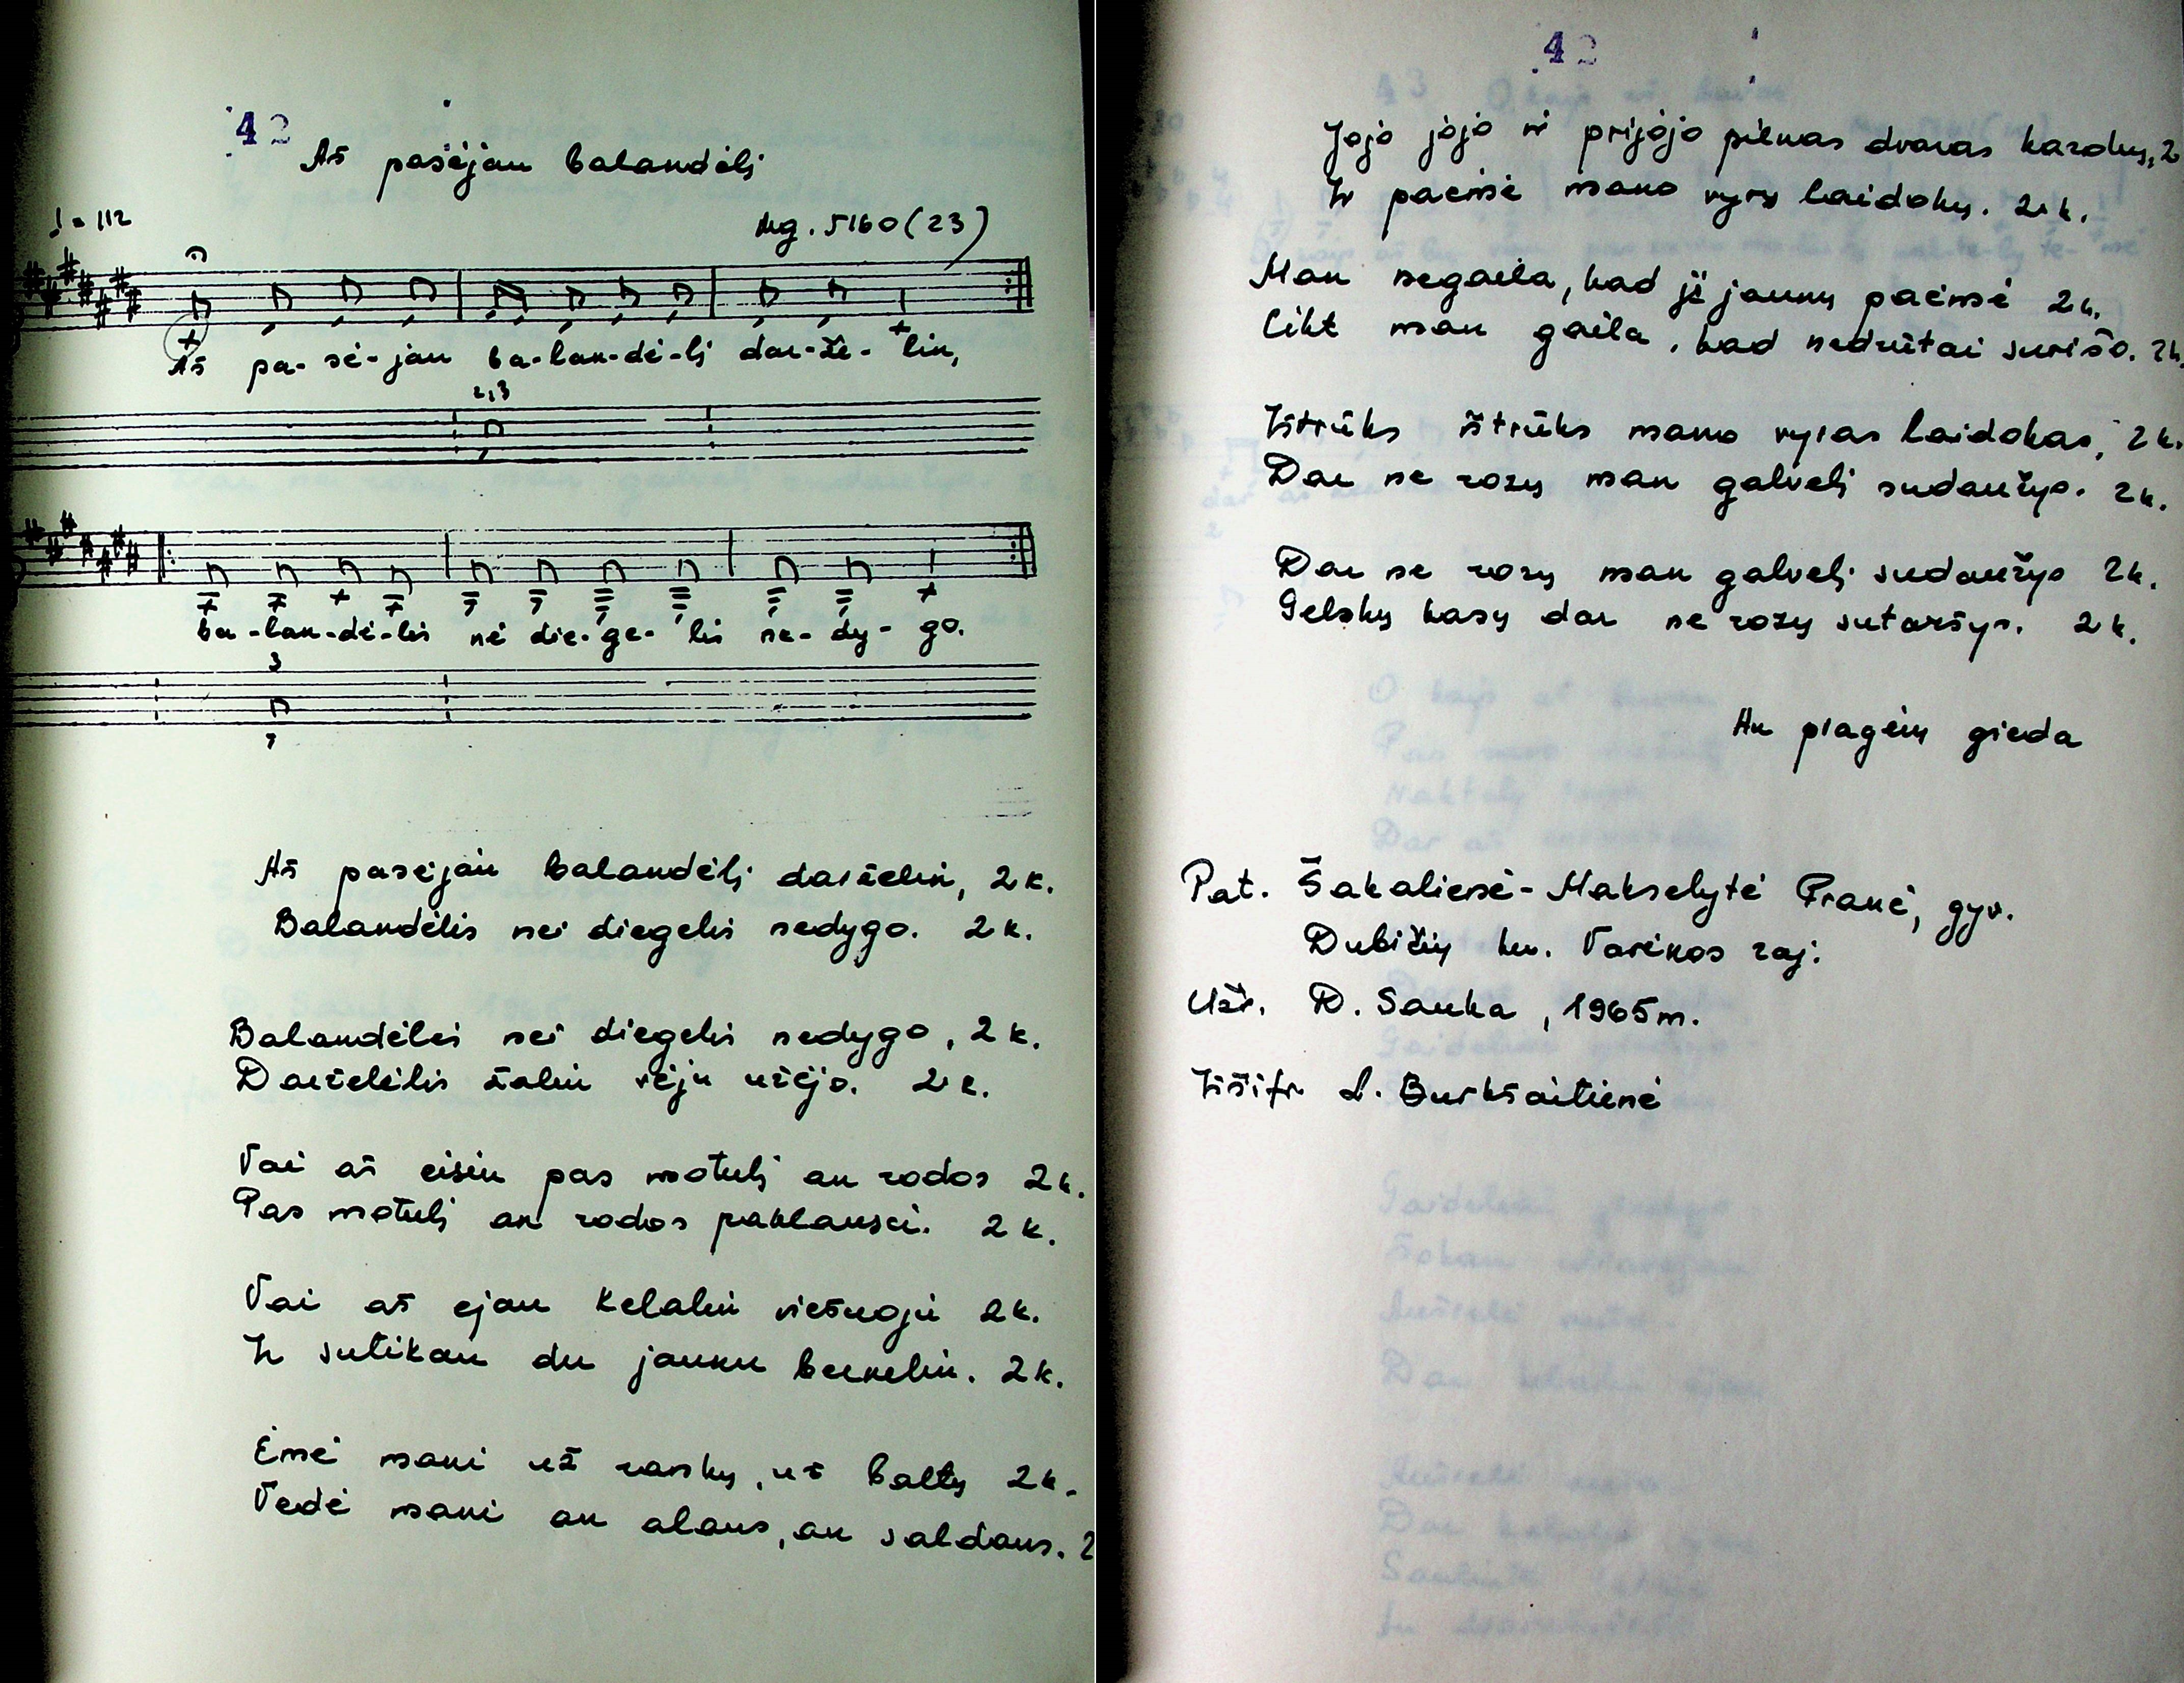 42
Aš pasėjau balandėlį
♩ = 112
Mg. 5160 (23)
Aš pa- sė- jau ba-lan-dė-lį dar-že- lin,
2,3
ba-lan-dė-lis nė die-ge- lis ne- dy- go.
3
Aš pasėjau balandėlį darželin, 2 k.
Balandėlis nei diegelis nedygo. 2 k.
Balandėlis nei diegelis nedygo, 2 k.
Darželėlis žaliu vėju užėjo. 2 k.
Vai aš eisiu pas motulį an rodos 2 k.
Pas motulį an rodos paklausci. 2 k.
Vai aš ejau kelaliu viešuoju 2 k.
Ir sutikau du jaunu berneliu. 2 k.
Ėmė mani už rankų, už baltų 2 k.
Vedė mani an alaus, an saldaus. 2
42
Jojo jojo ir prijojo pilnas dvaras kardų, 2
Ir paėmė mano vyrų laidokų. 2 k.
Man negaila, kad jį jaunų paėmė 2 k.
Cikt man gaila, kad nedrūtai surišo. 2 k.
Ištrūks ištrūks mano vyras laidokas, 2 k.
Dar ne rozų man galvelį sudaužys. 2 k.
Dar ne rozų man galvelį sudaužys 2 k.
Gelskų kasų dar ne rozų sutaršys. 2 k.
An piagėių gieda
Pat. Šakalienė-Makselytė Pranė, gyv.
Dubičių km. Varėnos raj.
Užr. D. Sauka, 1965 m.
Iššifr L. Burkšaitienė